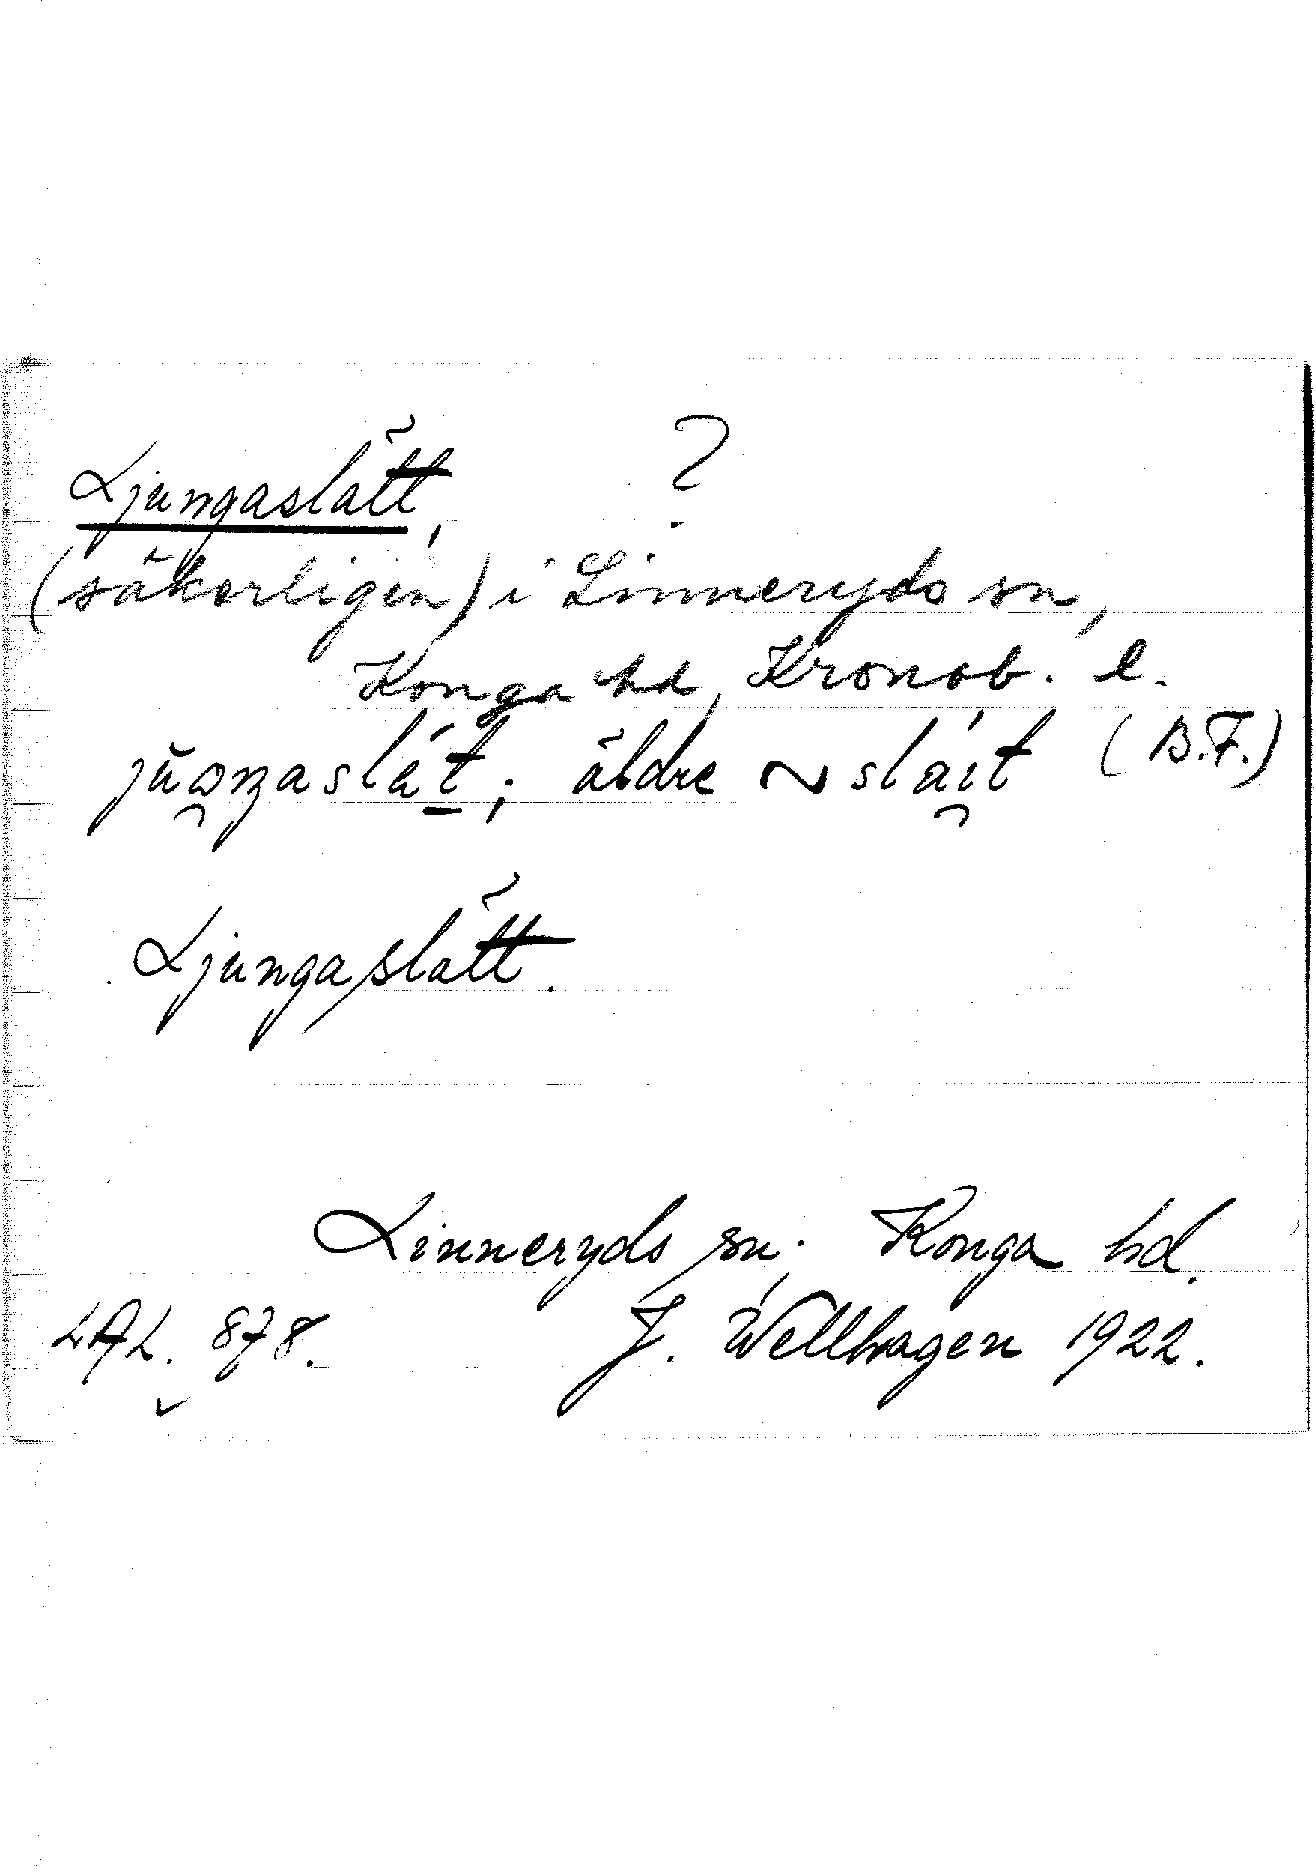 Ljungaslätt, ?
(säkerligen) i Linneryds sn,
Konga hd, Kronob. l.
äldre ~ slái̯t (B.F.)
Ljungaslätt.
Linneryds sn. Konga hd.
LAL. 878. J. Wellhagen 1922.